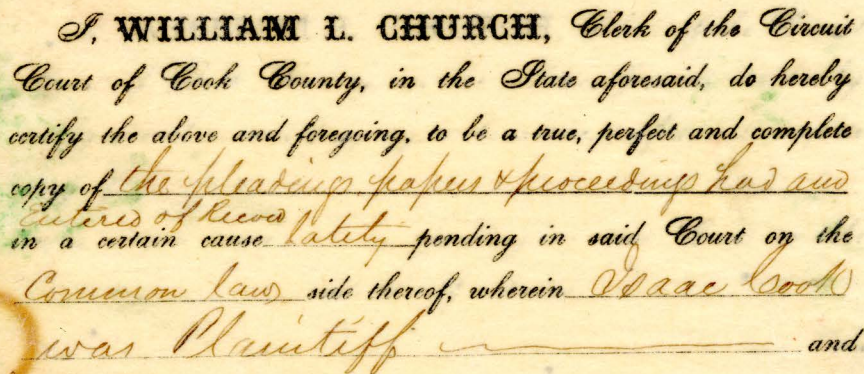 I, WILLIAM L. CHURCH, Clerk of the Circuit
Court of Cook County, in the State aforesaid, do hereby
certify the above and foregoing, to be a true, perfect and complete
copy of the pleadings, papers & proceedings had and
Entered of Record
in a certain cause lately pending in said Court on the
Common law side thereof, wherein Isaac Cook
was Plaintiff and